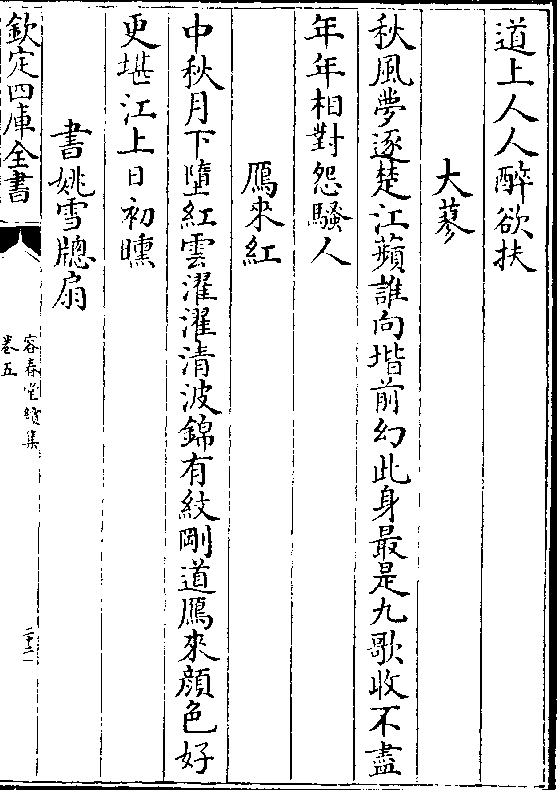 道上人人醉欲扶
大蓼
秋風夢逐楚江蘋誰向堦前幻此身最是九歌收不盡
年年相對怨騷人
鴈來紅
中秋月下墮紅雲濯濯清波錦有紋剛道鴈來顔色好
更堪江上日初曛
書姚雪牎扇
欽定四庫全書
容春堂續集
卷五